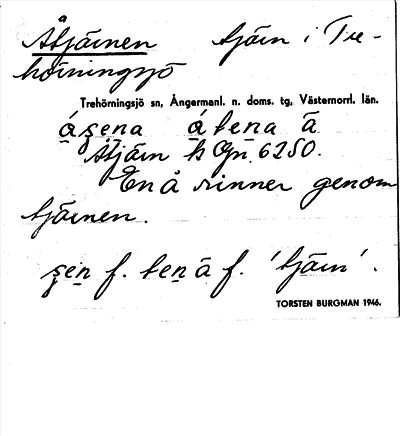 Åtjärnen tjärn i Tre-
hörningsjö
Trehörningsjö sn, Ångermanl. n. doms. tg, Västernorrl. län.
á̱ʂe̱na á̱tena ā
Åtjärn k Gn. 6250.
En å rinner genom
tjärnen.
ʂen f. ten ā f. 'tjärn'.
TORSTEN BURGMAN 1946.